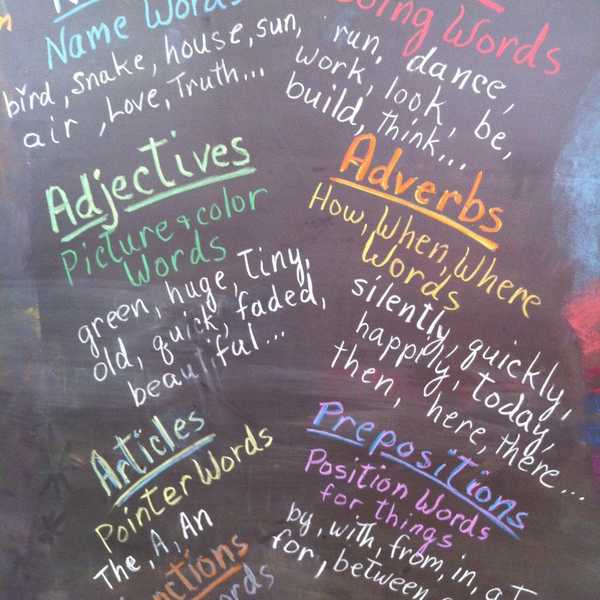 Name Words
bird, snake, house, sun,
air, Love, Truth...
Doing Words
run, dance,
work, look, be,
build, think...
Adjectives
Picture & color
Words
green, huge, Tiny,
old, quick, faded,
beautiful...
Adverbs
How, When, Where
Words
silently, quickly,
happily, today,
then, here, there...
Articles
Pointer Words
The, A, An
Prepositions
Position Words
for things
by, with, from, in, at
for, between
nctions
ords